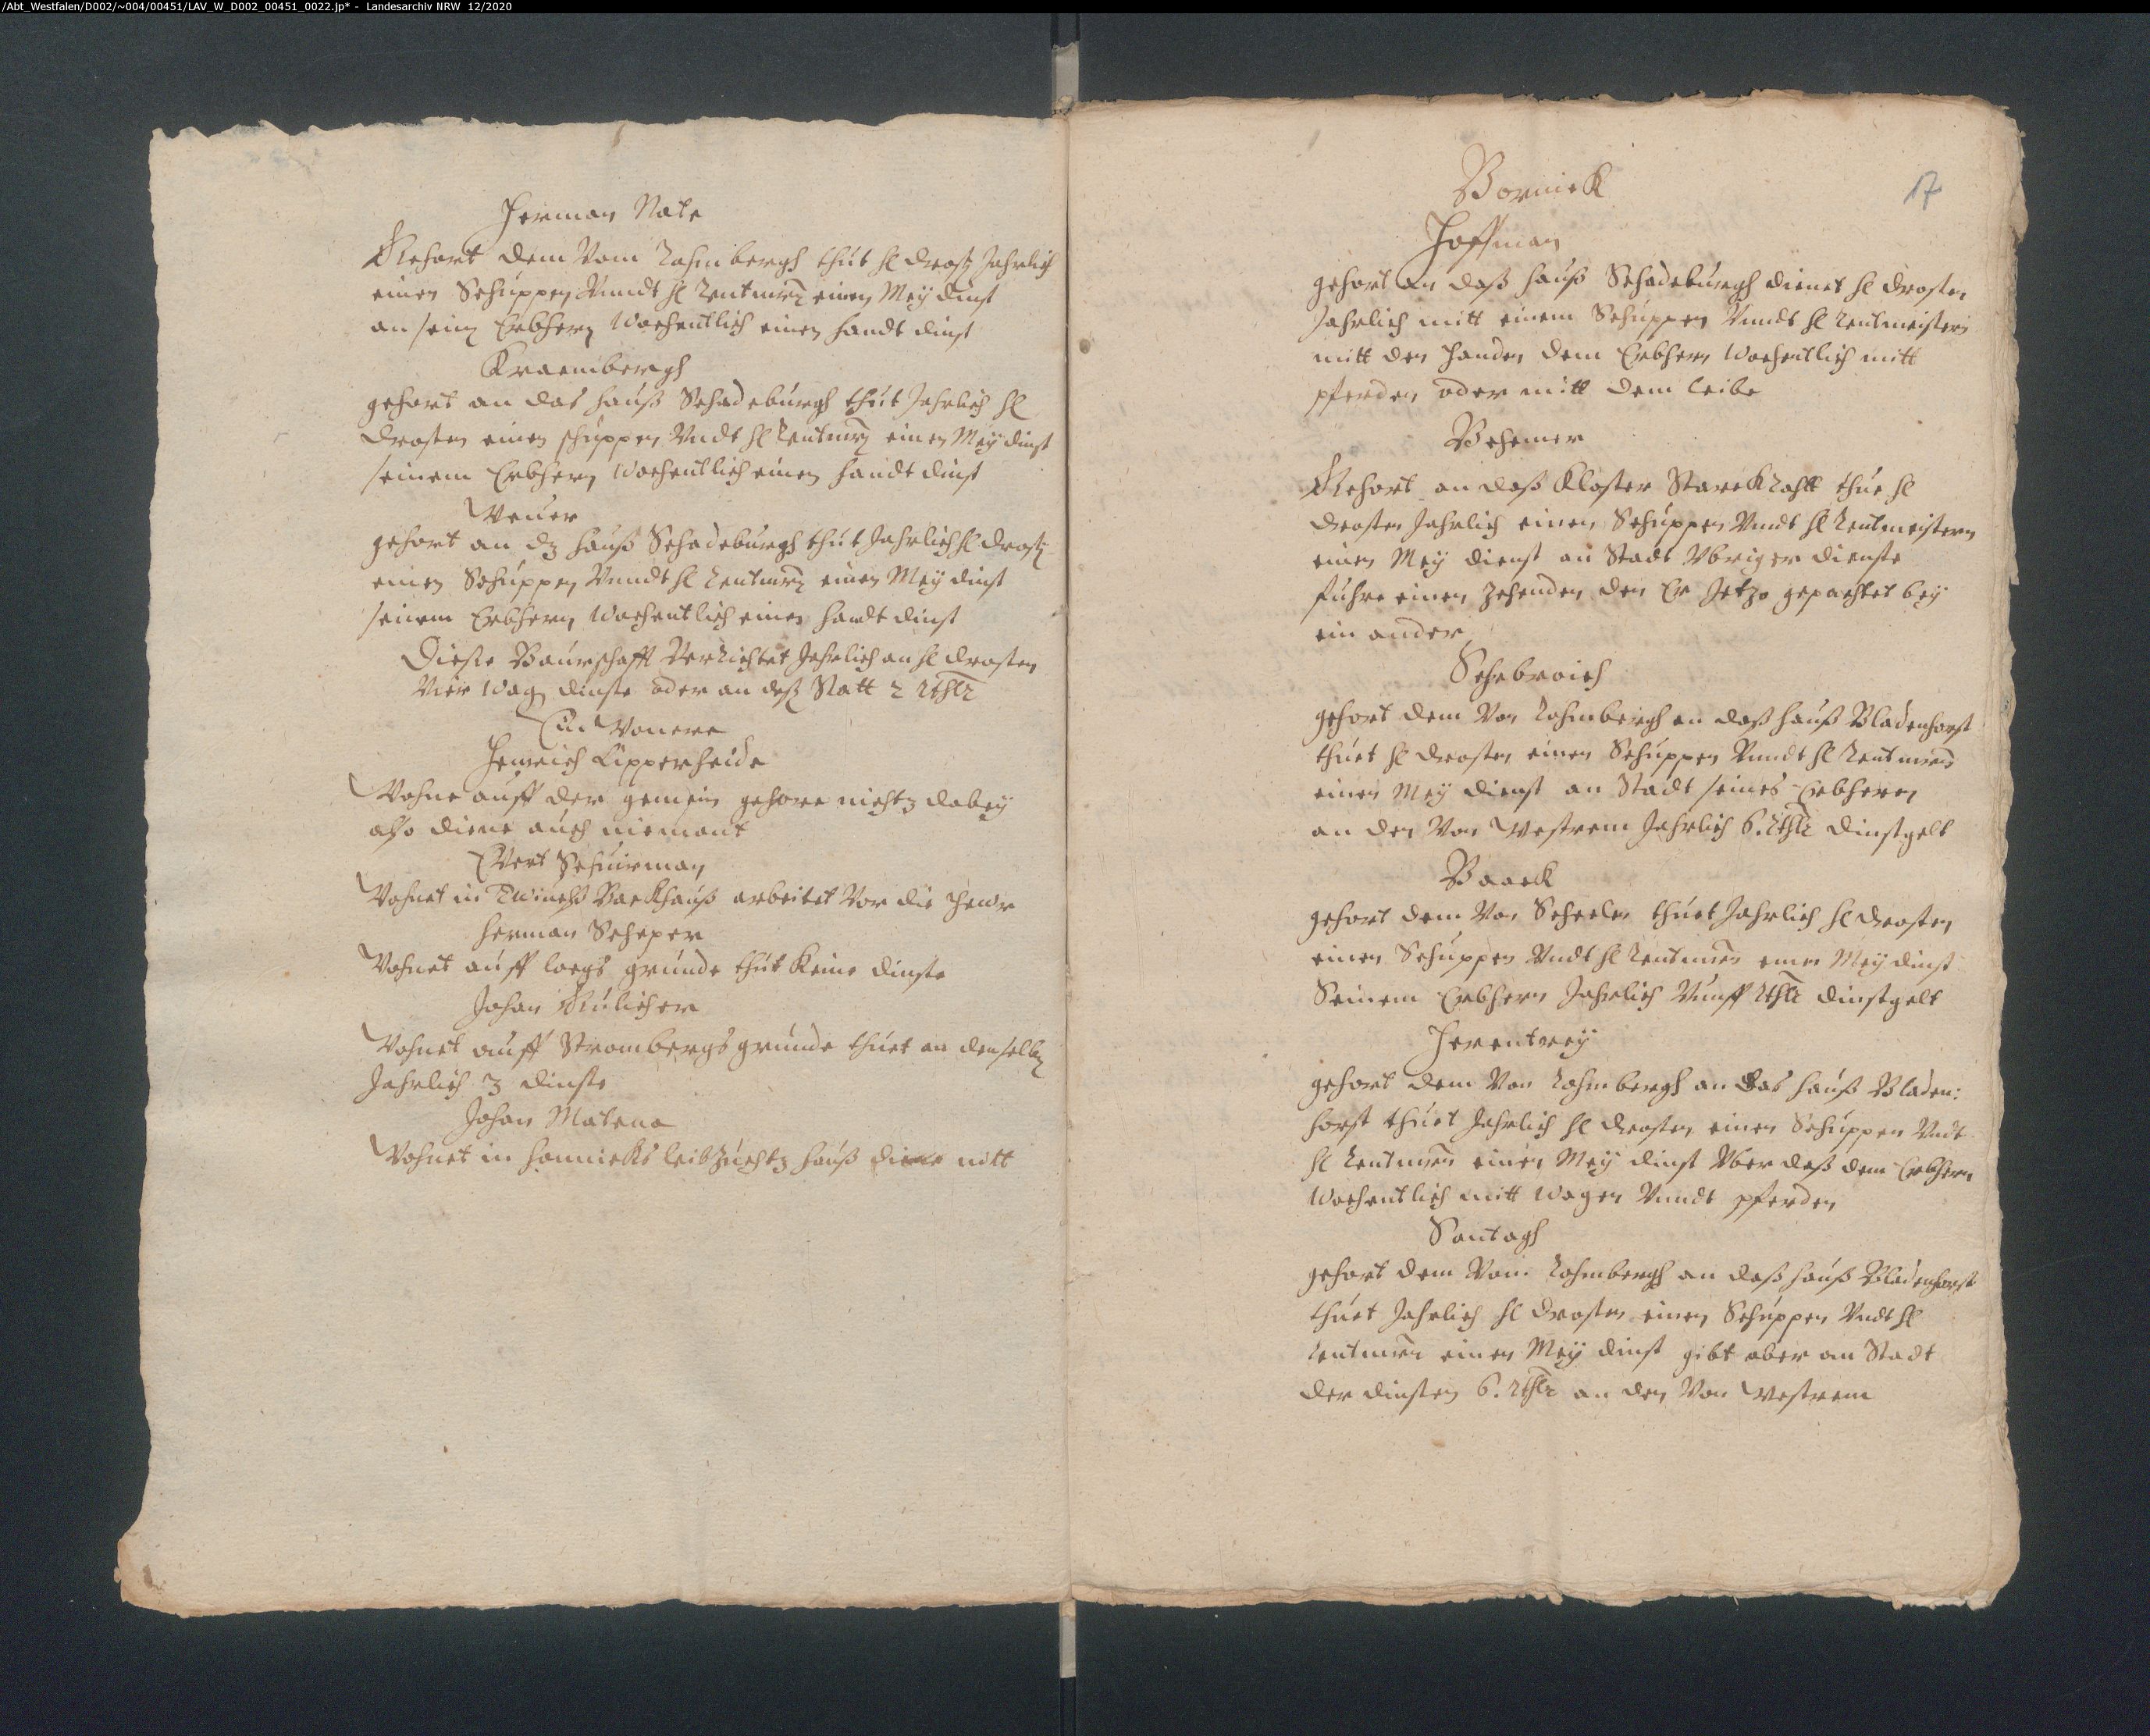 /Abt_Westfalen/D002/~004/00451/LAV_W_D002_00451_0022.jp* - Landesarchiv NRW 12/2020
Herman Nate
Gehort dem Vom Rohmbergh thut hl drostn Jahrlich
einen Schuppen Vnndt hl Rentmrn einen Meÿ dinst
an seinen Erbhern Wochentlich einen handt dinst
Kraembergh
gehort an das hauß Schadeburgh thut Jahrlich hl
drosten einen schuppen Vndt hl Rentmrn einen Meÿ dinst
seinem Erbhern Wochentlich einen handt dinst
gehort an dz hauß Schadeburgh thut Jahrlich hl drostn
einen Schuppen Vnndt hl Rentmrn einen Meÿ dinst
seinem Erbhern Wochentlich einen handt dinst
Diese Baurschafft Verrichtet Jahrlich an hl drosten
Vier Wagen dinste oder an deß Statt 2 Rthlr
Ein Wonere
Henrich Lipperheide
Wohne auff der gemein gehore nichtz dabeÿ
also diene auch niemant
Evert Schuirman
Wohnet in Backhauß arbeitet Vor die hewr
Herman Scheper
Wohnet auff loegs grunde thut keine dinste
Johan Gulicher
Wohnet auff Strombergs grunde thuet an denselben
Jahrlich 3 dinste
Johan Matena
Wohnet in leibzuchtz hauß diene nitt
17
Bornick
Hoffman
gehort an daß hauß Schadeburgh dienet hl drosten
Jahrlich mitt einem Schuppen Vnndt hl Rentmeistern
mitt den Handen dem Erbhern Wochentlich mitt
pferden oder mitt dem leibe
Behemer
Gehort an daß Kloster Starckradtt thue hl
drosten Jahrlich einen Schuppen Vnndt hl Rentmeistern
einen Meÿ dienst an Stadt Vbriger dienste
fuhre einen Zehenden den Er Jetzo gepachtet beÿ
ein ander
Schebroich
gehort dem Von Rohmbergh an daß hauß Bladenhorst
thuet hl drosten einen Schuppen Vnndt hl Rentmrn
einen Meÿ dienst an Stadt seines Erbheren
an den Von Westrem Jahrlich 6. Rthlr dinstgelt
Baack
gehort dem Von Scheelen thuet Jahrlich hl drosten
einen Schuppen Vndt hl Rentmrn einen Meÿ dinst
Seinem Erbhern Jahrlich Vunff Rthlr dinstgelt
Herentreÿ
gehort dem Von Rohmbergh an das hauß Bladen:
horst thuet Jahrlich hl drosten einen Schuppen Vndt
hl Rentmrn einen Meÿ dinst Vber daß dem Erbhern
Wochentlich mitt Wagen Vnndt pferden
Sontagh
gehort dem Vom Rohmbergh an daß hauß Bladenhorst
thuet Jahrlich hl drosten einen Schuppen Vndt hl
Rentmrn einen Meÿ dinst gibt aber an Stadt
der dinsten 6. Rthlr an den Von Westrem